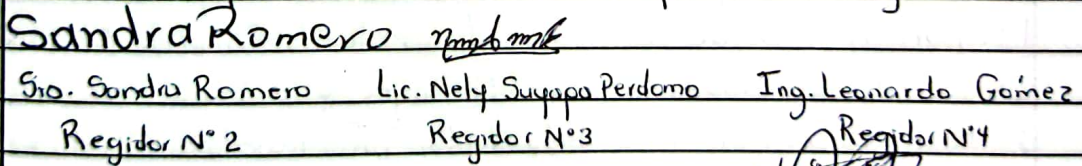 Sandra Romero
Sra. Sandra Romero Lic. Nely Suyapa Perdomo Ing. Leonardo Gómez
Regidor N° 2 Regidor N°3 Regidor N°4